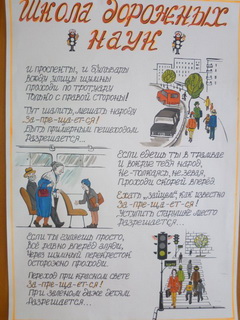 Школа дорожных
наук
И проспекты, и бульвары
Всюду улицы шумны
Проходи по тротуару
Только с правой стороны!
Тут шалить, мешать народу
За-пре-ща-ет-ся!
Быть примерным пешеходом
Разрешается...
Если едешь ты в трамвае
И вокруг тебя народ,
Не толкаясь, не зевая,
Проходи скорей вперёд.
Ехать "зайцем", как известно
За-пре-ща-ет-ся!
Уступить старушке место
Разрешается...
Если ты гуляешь просто,
Всё равно вперёд гляди,
Через шумный перекрёсток
Осторожно проходи.
Переход при красном свете
За-пре-ща-ет-ся!
При зелёном даже детям
Разрешается...